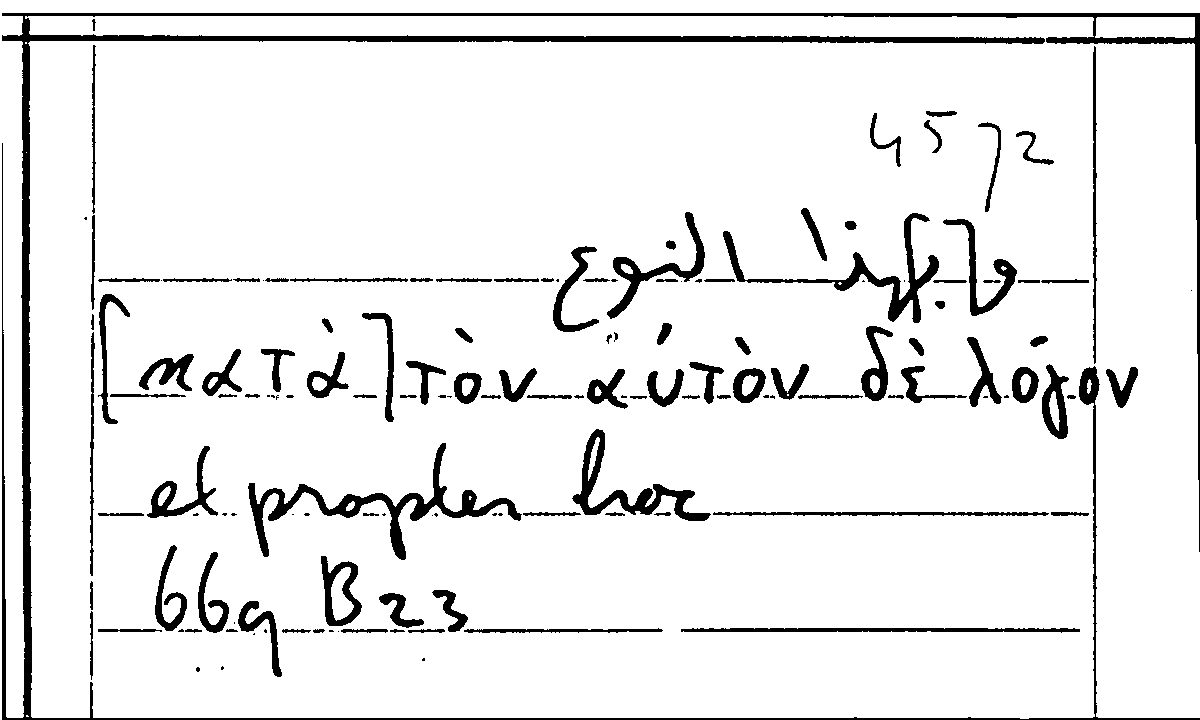 4572
و[ب]هذا النوع
[κατὰ] τὸν αὐτὸν δὲ λόγον
et propter hoc
669 B23